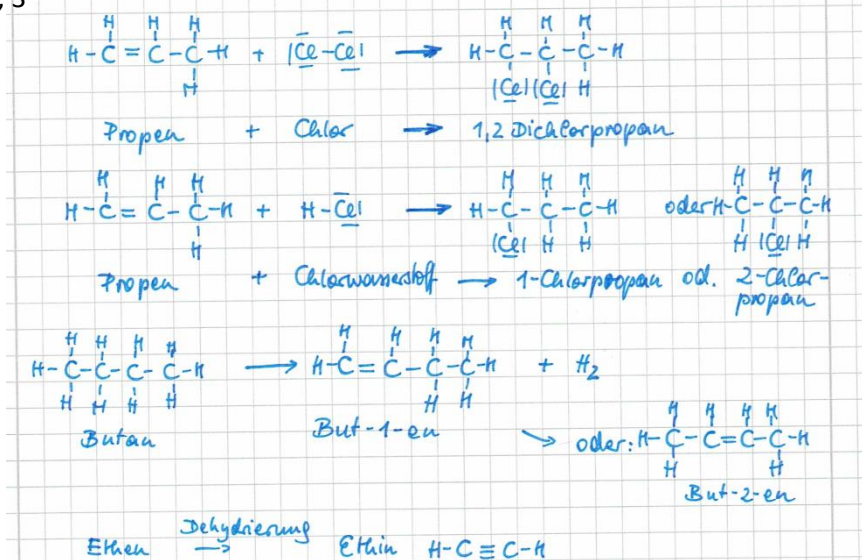 H H H H H H
H-C=C-C-H + |Cl-Cl| → H-C-C-C-H
H |Cl||Cl| H
Propen + Chlor → 1,2 Dichlorpropan
H H H H H H H H H
H-C=C-C-H + H-Cl| → H-C-C-C-H oder H-C-C-C-H
H |Cl| H H H |Cl| H
Propen + Chlorwasserstoff → 1-Chlorpropan od. 2-Chlor-
propan
H H H H H H H H
H-C-C-C-C-H → H-C=C-C-C-H + H₂
H H H H H H
Butan But-1-en
H H H H
→ oder: H-C-C=C-C-H
H H
But-2-en
Dehydrierung
Ethen → Ethin H-C≡C-H